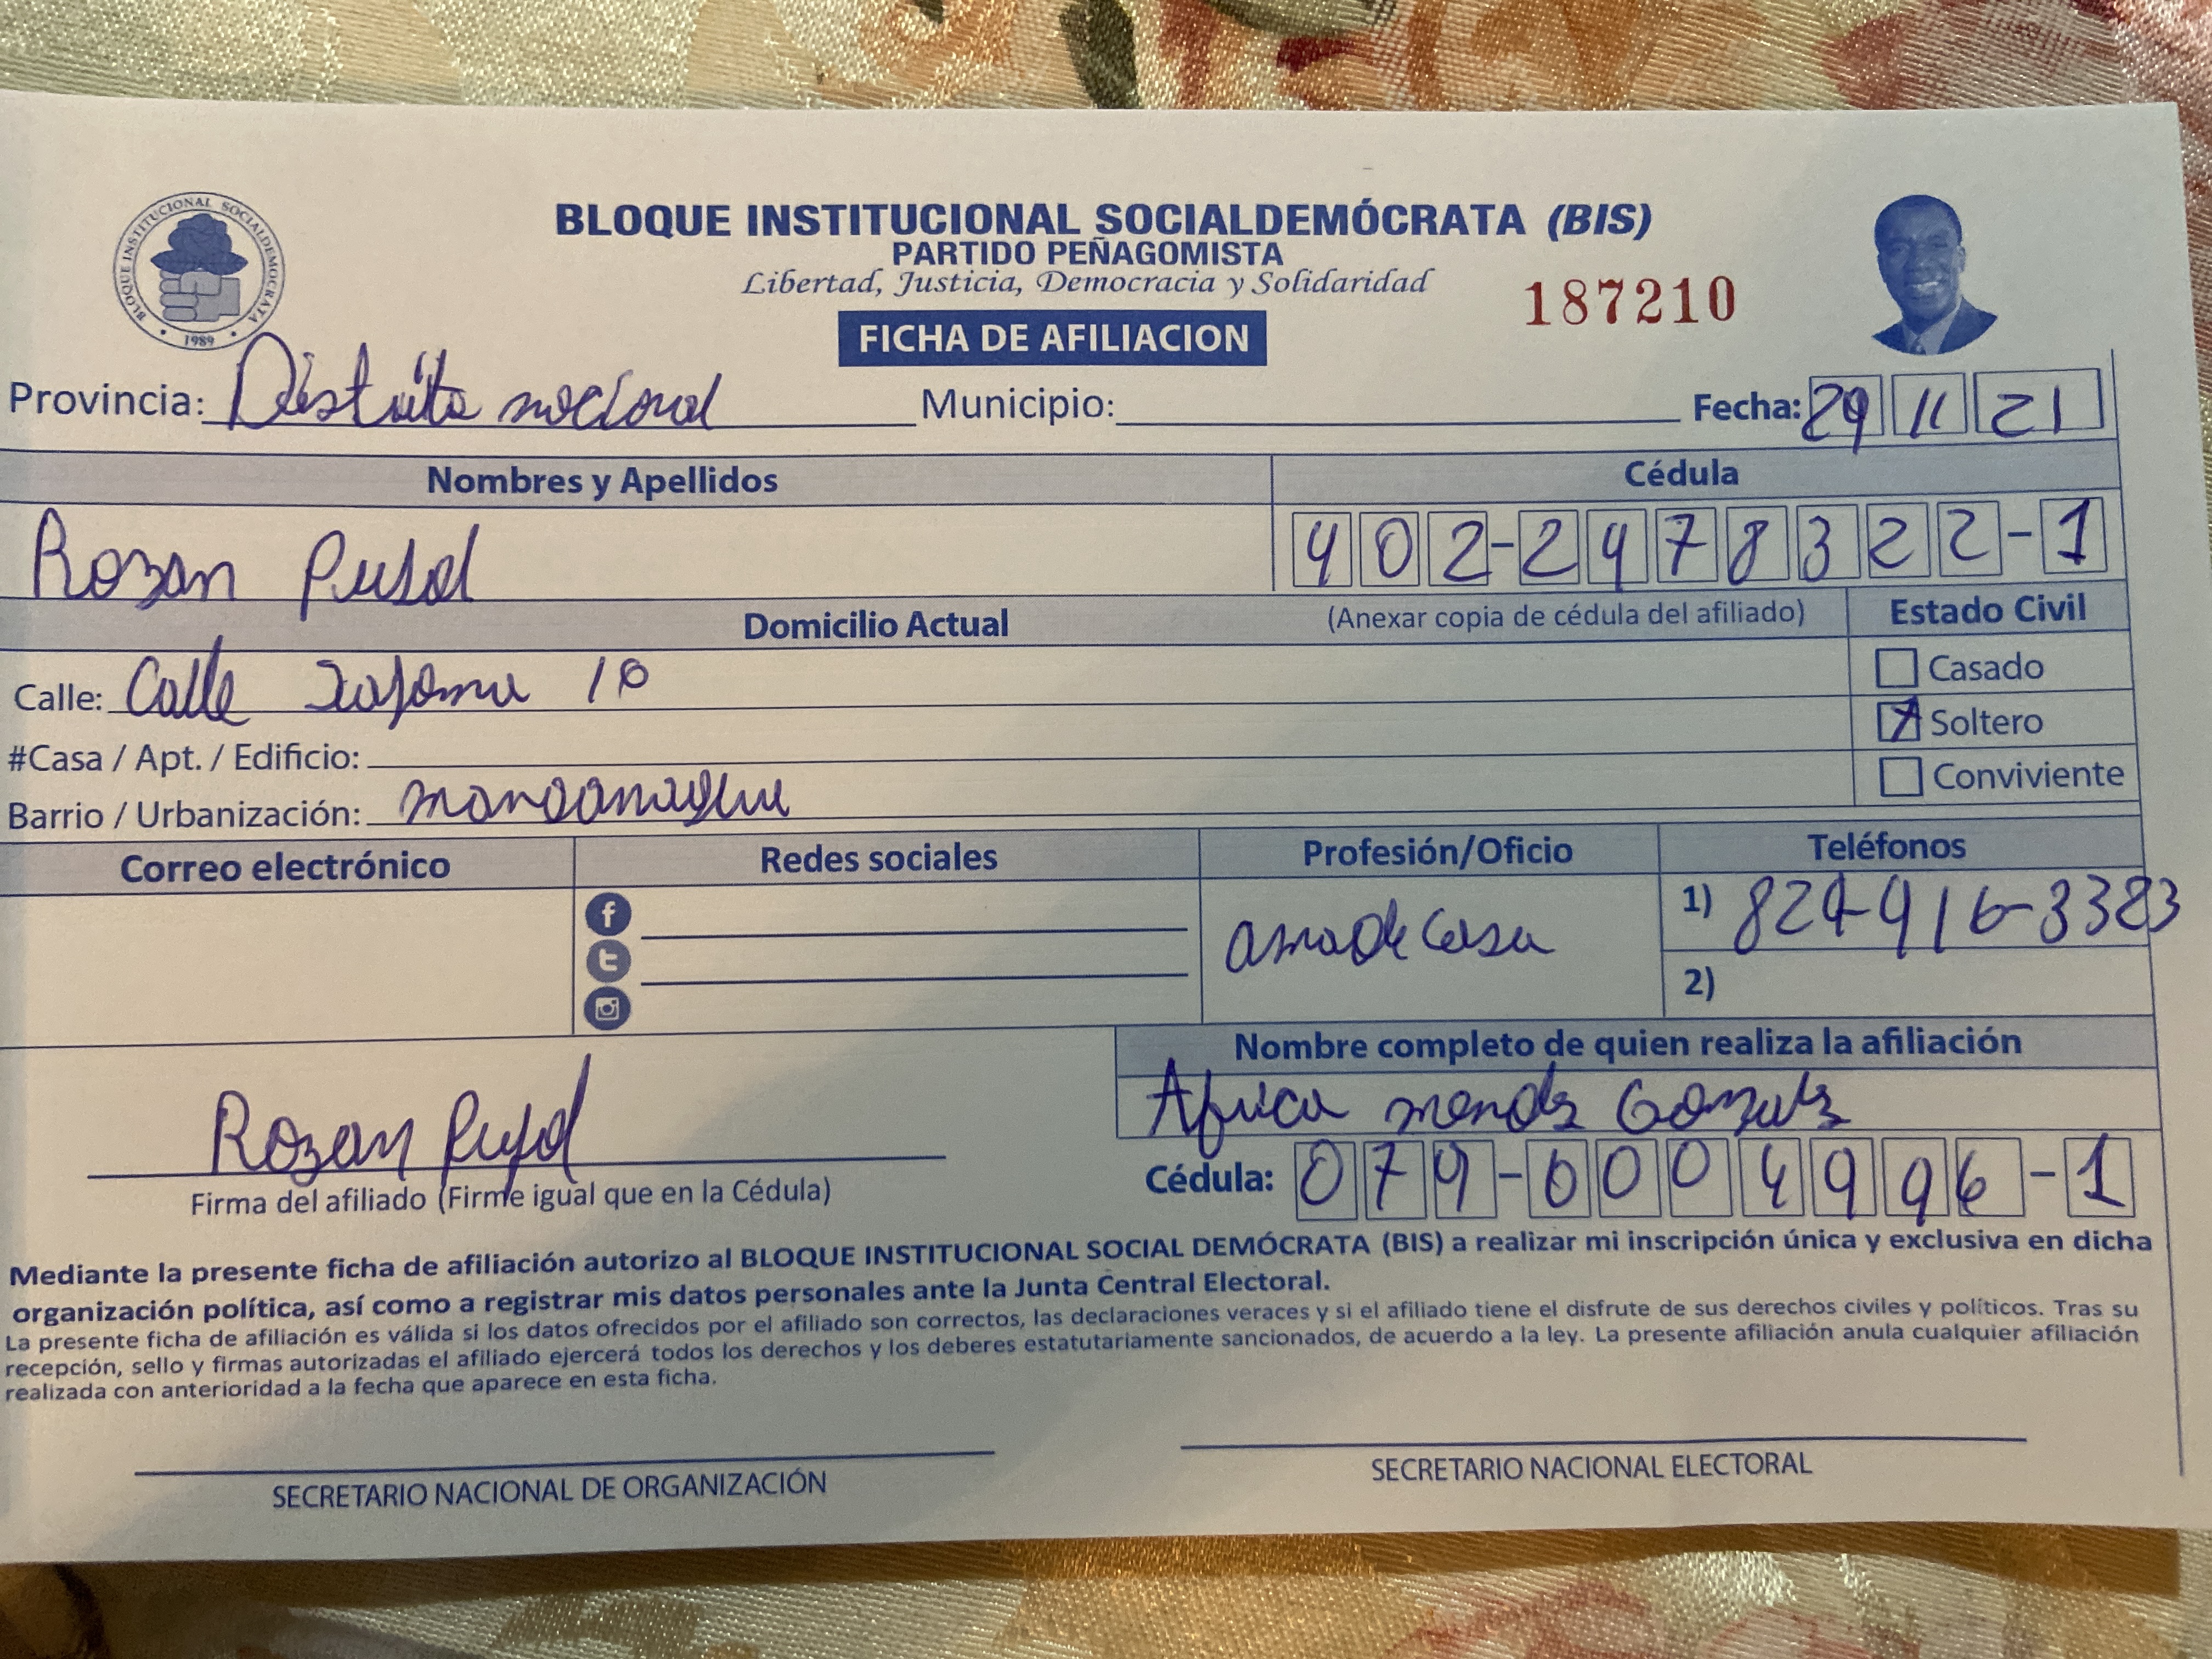 BLOQUE INSTITUCIONAL SOCIALDEMÓCRATA • 1989 •
BLOQUE INSTITUCIONAL SOCIALDEMÓCRATA (BIS)
PARTIDO PEÑAGOMISTA
Libertad, Justicia, Democracia y Solidaridad
187210
FICHA DE AFILIACION
Provincia: Distrito nacional Municipio: Fecha: 29 11 21
Nombres y Apellidos Cédula
Rozan Pujol 402-2478322-1
Domicilio Actual (Anexar copia de cédula del afiliado) Estado Civil
Casado
Calle: Calle 10
Soltero
#Casa / Apt. / Edificio:
Conviviente
Barrio / Urbanización:
Correo electrónico Redes sociales Profesión/Oficio Teléfonos
ama de Casa
1) 829-916-3383
2)
Nombre completo de quien realiza la afiliación
Africa mendez Gonzalez
Rozan Pujol
Cédula: 079-0004996-1
Firma del afiliado (Firme igual que en la Cédula)
Mediante la presente ficha de afiliación autorizo al BLOQUE INSTITUCIONAL SOCIAL DEMÓCRATA (BIS) a realizar mi inscripción única y exclusiva en dicha
organización política, así como a registrar mis datos personales ante la Junta Central Electoral.
La presente ficha de afiliación es válida si los datos ofrecidos por el afiliado son correctos, las declaraciones veraces y si el afiliado tiene el disfrute de sus derechos civiles y políticos. Tras su
recepción, sello y firmas autorizadas el afiliado ejercerá todos los derechos y los deberes estatutariamente sancionados, de acuerdo a la ley. La presente afiliación anula cualquier afiliación
realizada con anterioridad a la fecha que aparece en esta ficha.
SECRETARIO NACIONAL DE ORGANIZACIÓN SECRETARIO NACIONAL ELECTORAL